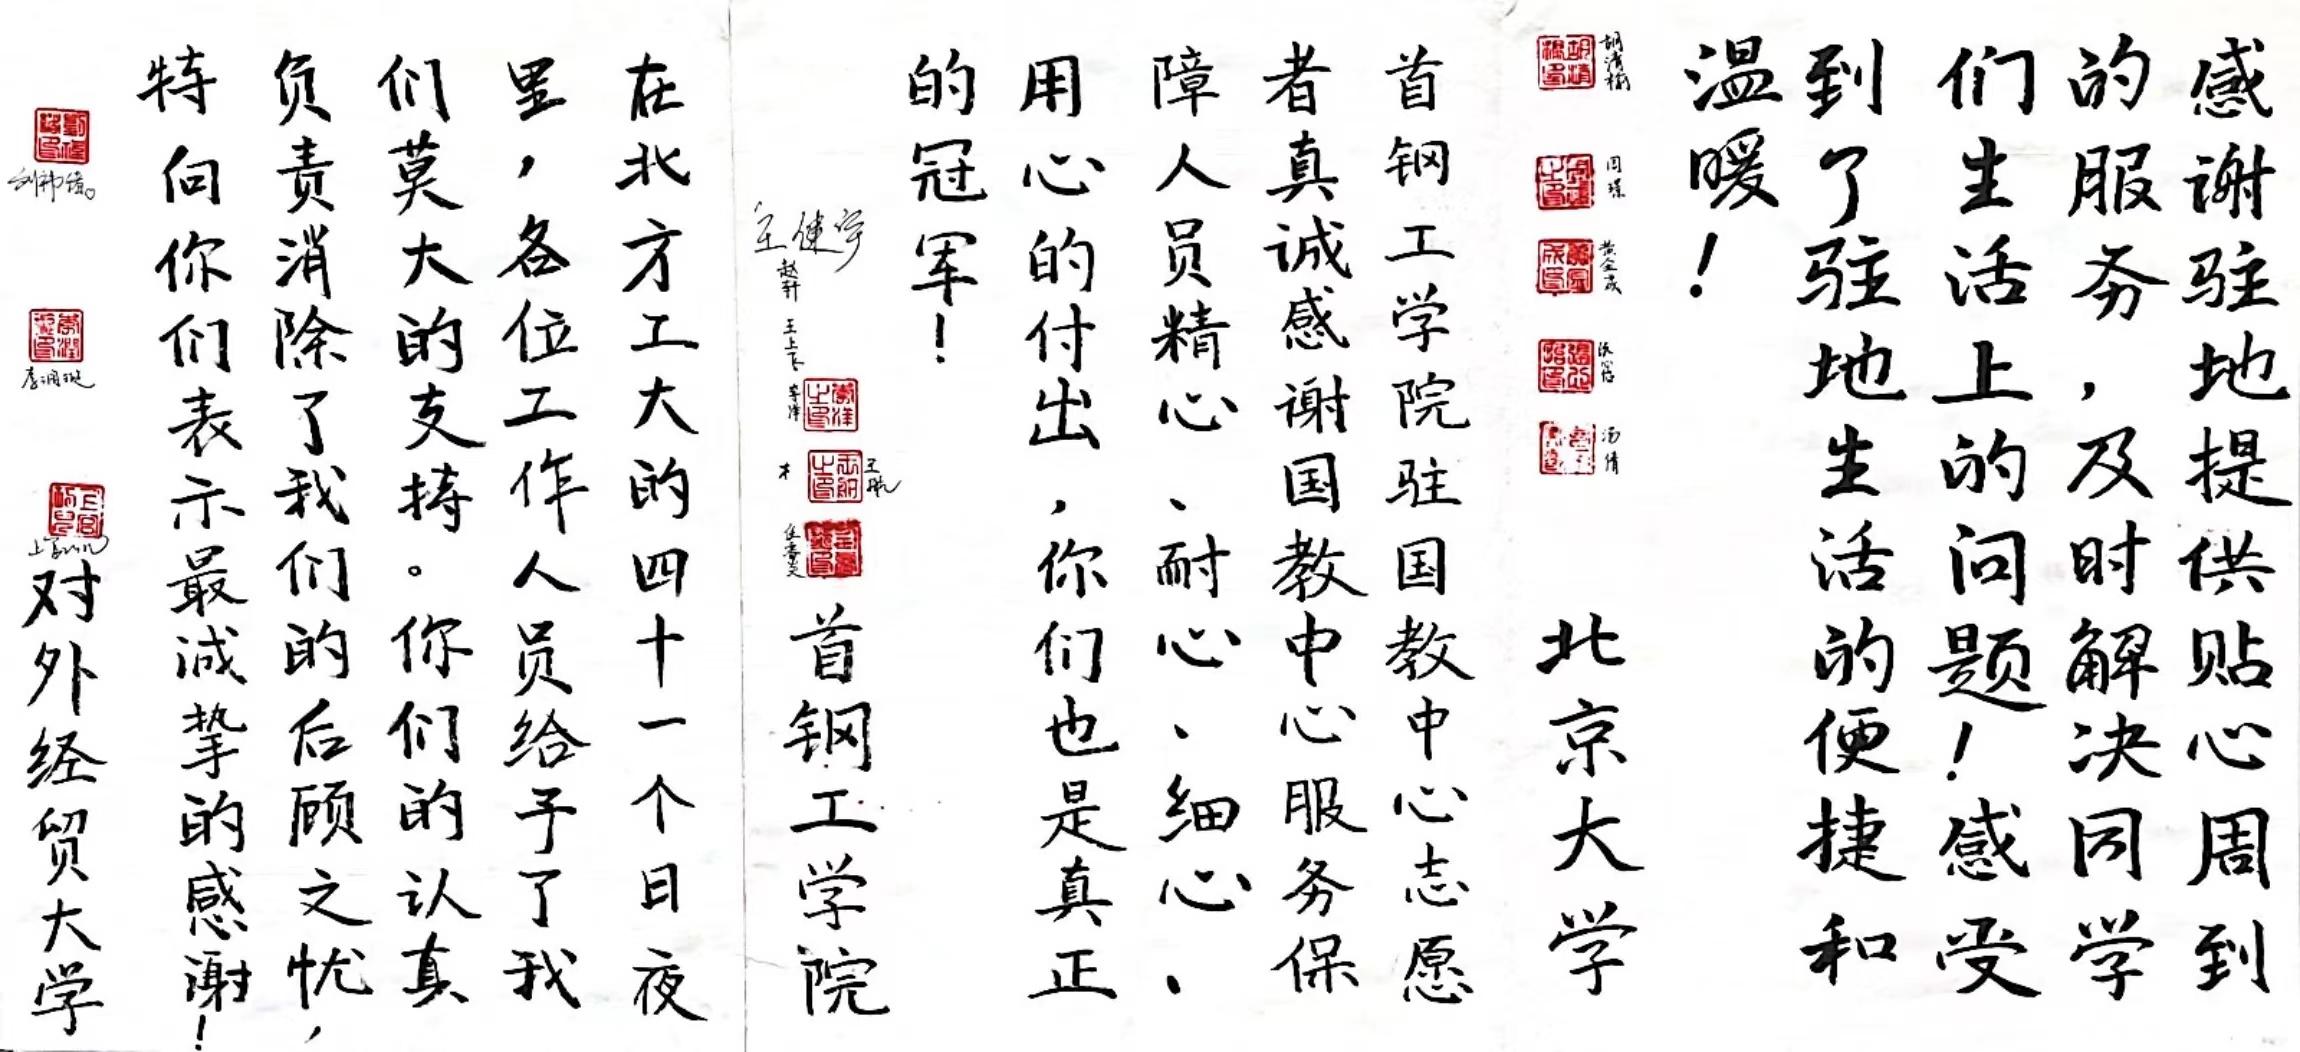 感谢驻地提供贴心周到
的服务，及时解决同学
们生活上的问题！感受
到了驻地生活的便捷和
温暖！
胡清梅
周璟
黄金成
汤倩
北京大学
首钢工学院驻国教中心志愿
者真诚感谢国教中心服务保
障人员精心、耐心、细心、
用心的付出，你们也是真正
的冠军！
王健宇
赵轩
王上飞
李洋
王帆
首钢工学院
在北方工大的四十一个日夜
里，各位工作人员给予了我
们莫大的支持。你们的认真
负责消除了我们的后顾之忧，
特向你们表示最诚挚的感谢！
对外经贸大学